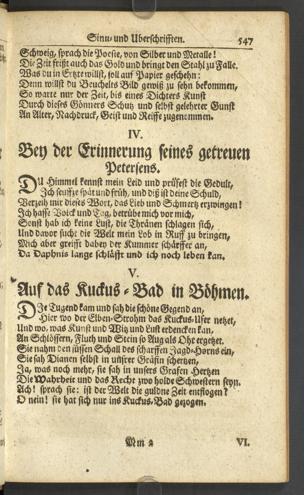 Sinn- und Uberschrifften. 547
Schweig, sprach die Poesie, von Silber und Metalle!
Die Zeit frißt auch das Gold und bringt den Stahl zu Falle.
Was du in Ertzte willst, soll auf Papier geschehn:
Denn willst du Beuchelts Bild gewiß zu sehn bekommen,
So warte nur der Zeit, bis eines Dichters Kunst
Durch dieses Gönners Schutz und selbst gelehrter Gunst
An Alter, Nachdruck, Geist und Reiffe zugenommen.
IV.
Bey der Erinnerung seines getreuen
Petersens.
DU Himmel kennst mein Leid und prüfest die Gedult,
Ich seuffze spät und früh, und diß ist deine Schuld,
Verzeih mir dieses Wort, das Lieb und Schmertz erzwingen!
Ich hasse Volck und Tag, betrübe mich vor mich,
Sonst hab ich keine Lust, die Thränen schlagen sich,
Und davor sucht die Welt mein Lob in Ruff zu bringen,
Mich aber greifft dabey der Kummer schärffer an,
Da Daphnis lange schläfft und ich noch leben kan.
V.
Auf das Kuckus-Bad in Böhmen.
DIe Tugend kam und sah die schöne Gegend an,
Hier wo der Elben-Strohm das Kuckus-Ufer netzet,
Und wo, was Kunst und Witz und Lust erdencken kan,
An Schlössern, Fluth und Stein so Aug als Ohr ergetzet.
Sie nahm den süssen Schall des scharffen Jagd-Horns ein,
Sie sah Dianen selbst in unsrer Gräfin schertzen,
Ja, was noch mehr, sie sah in unsers Grafen Hertzen
Die Wahrheit und das Recht zwo holde Schwestern seyn.
Ach! sprach sie: ist der Welt die guldne Zeit entflogen?
O nein! sie hat sich nur ins Kuckus-Bad gezogen.
Mm 2 VI.